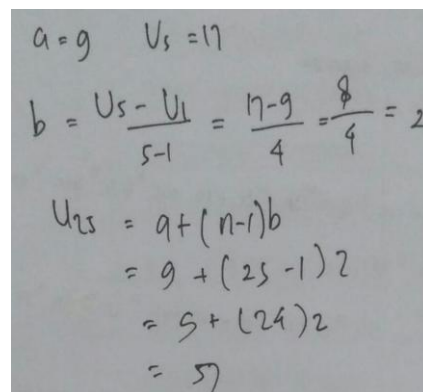 a = 9 U₅ = 17
b = U₅ - U₁ / 5-1 = 17-9 / 4 = 8 / 4 = 2
U₂₅ = a + (n-1)b
= 9 + (25-1)2
= 9 + (24)2
= 57